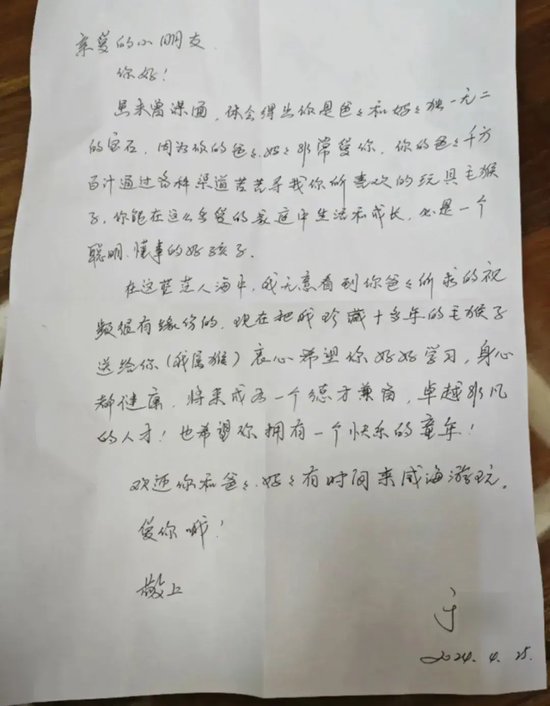 亲爱的小朋友
你好！
虽未曾谋面，体会得出你是爸々和妈々独一无二
的宝石，因为你的爸々妈々非常爱你，你的爸々千方
百计通过各种渠道苦苦寻找你所喜欢的玩具毛猴
子，你能在这么有爱的家庭中生活和成长，必是一个
聪明、懂事的好孩子。
在这茫茫人海中，我无意看到你爸々所求的视
频很有缘份的，现在把我珍藏十多年的毛猴子
送给你（我属猴）衷心希望你好好学习，身心
都健康，将来成为一个德才兼备，卓越非凡
的人才！也希望你拥有一个快乐的童年！
欢迎你和爸々妈々有时间来威海游玩。
爱你哦！
敬上
于
2024.4.25.